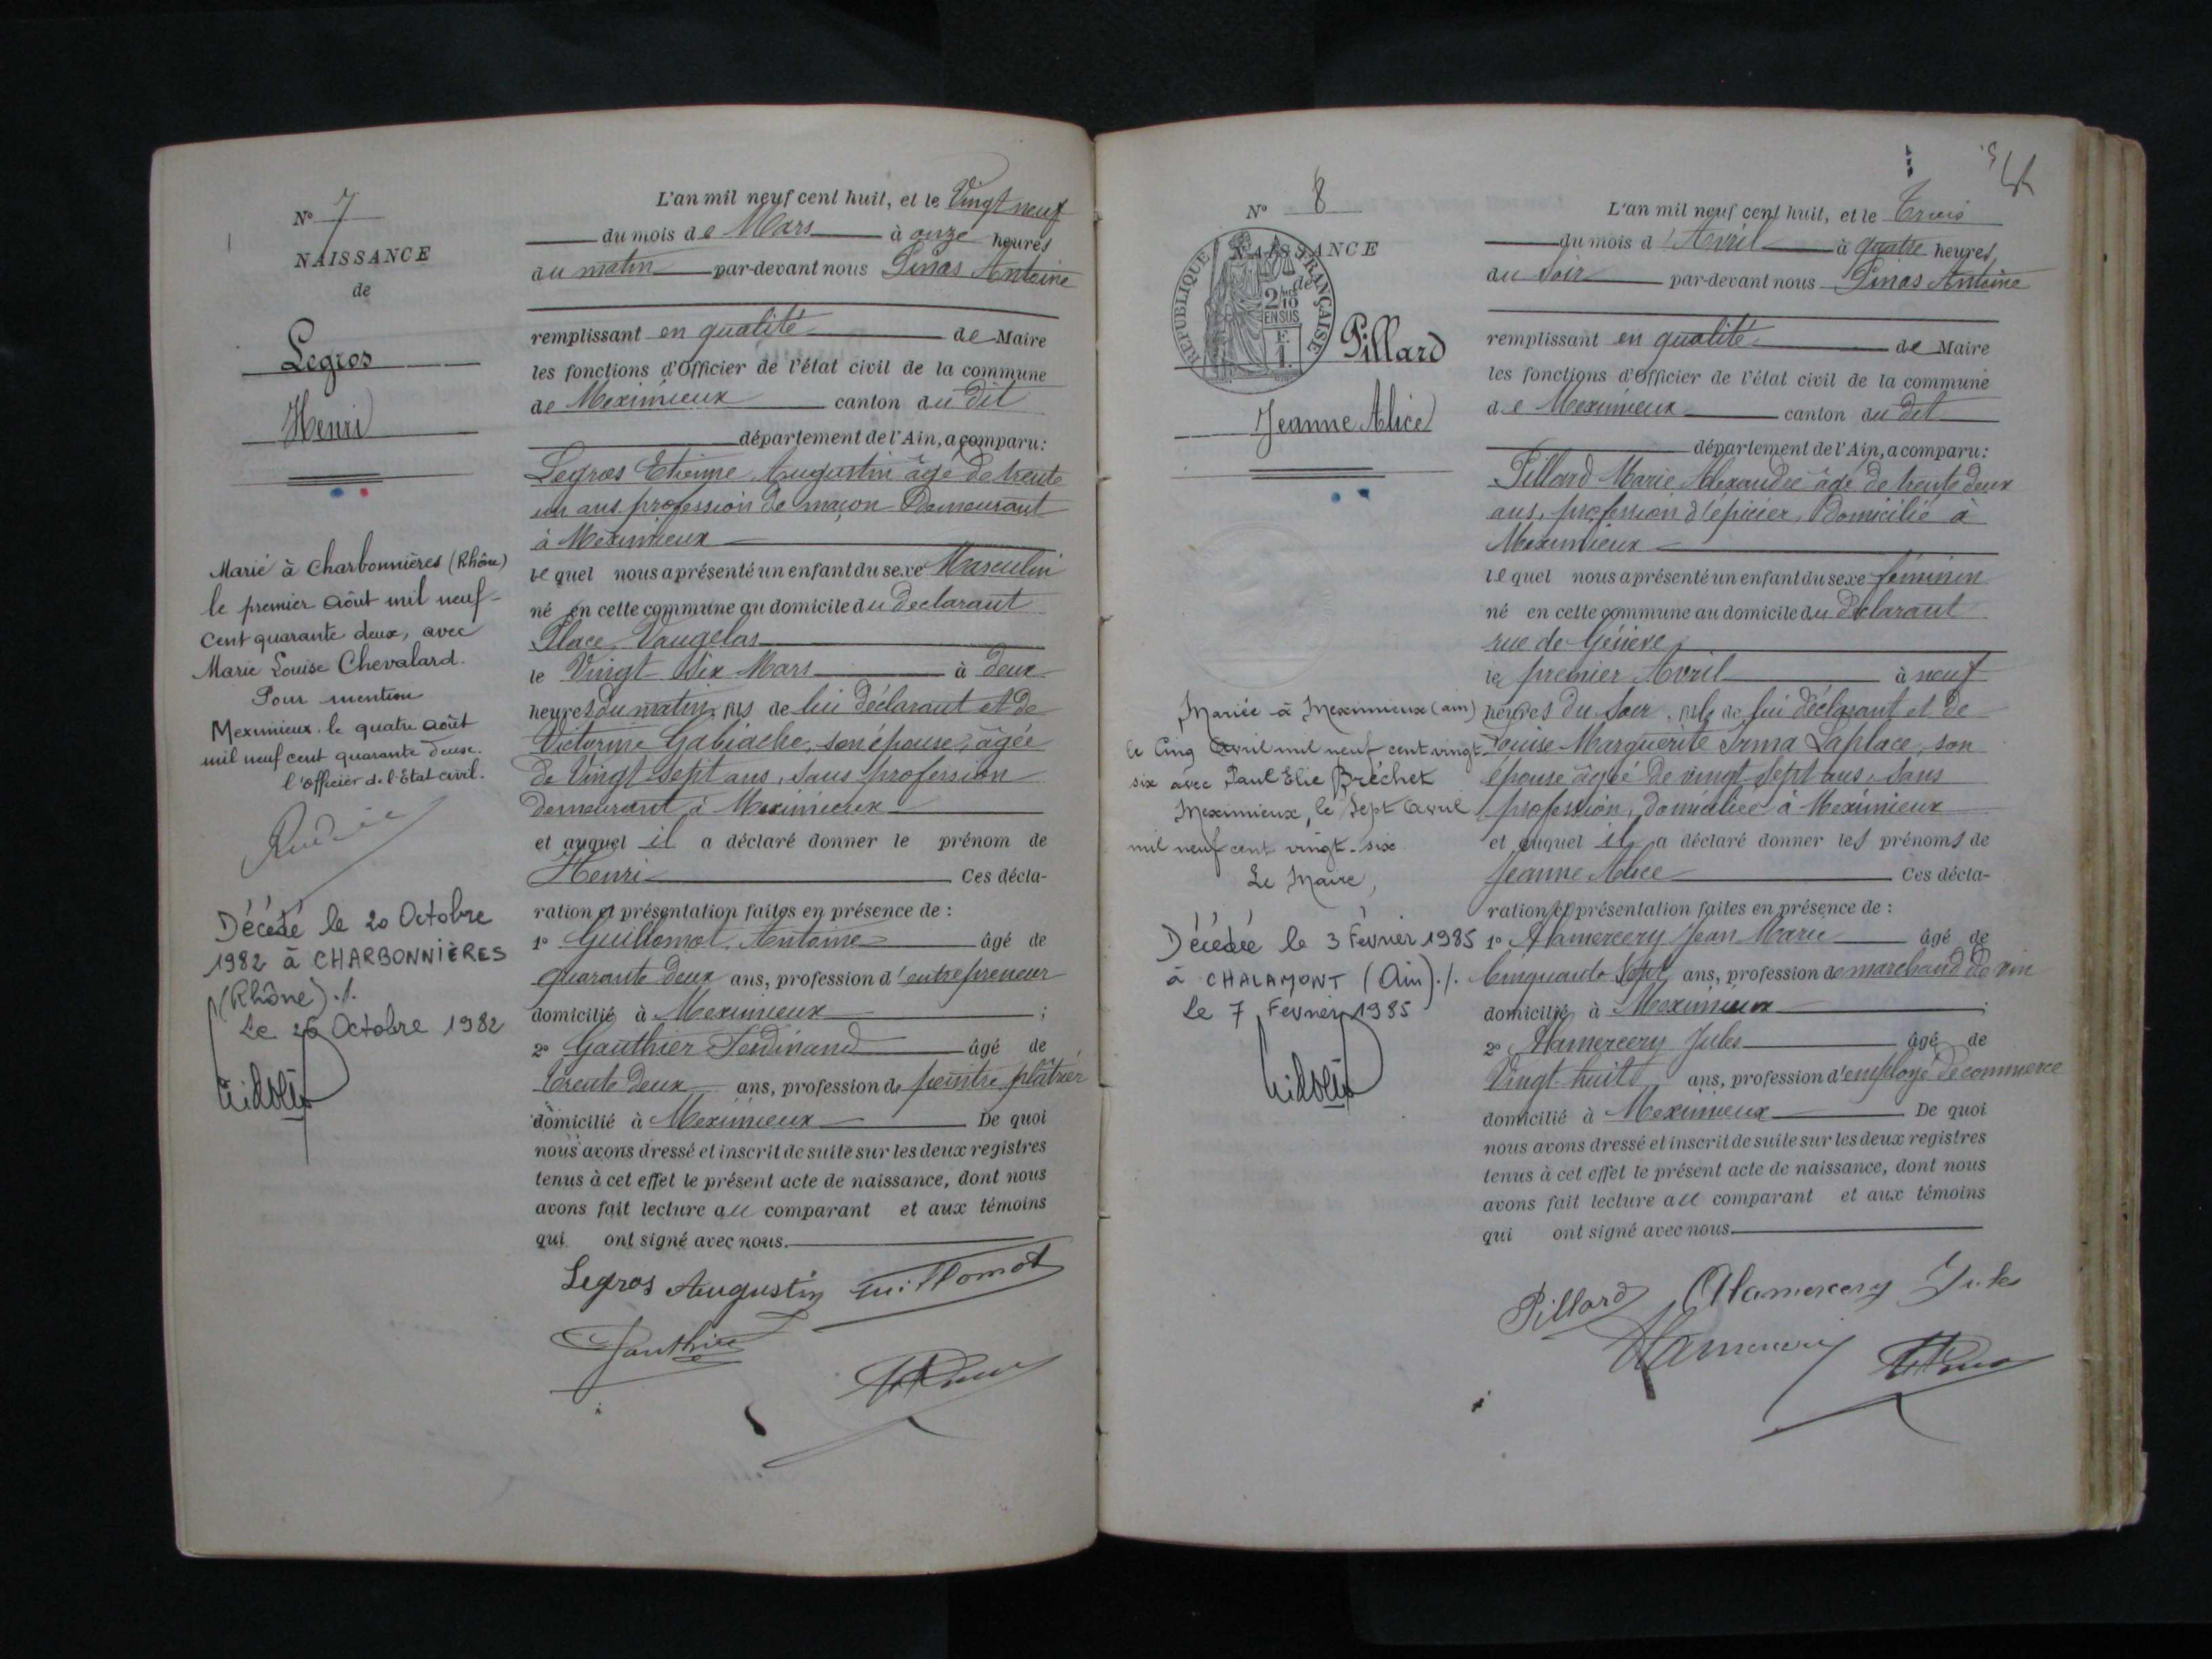 N° 7
NAISSANCE
de
Legros
Henri
Marié à Charbonnières (Rhône)
le premier Août mil neuf-
cent quarante deux, avec
Marie Louise Chevalard.
Pour mention
Meximieux le quatre août
mil neuf cent quarante deux.
l'Officier de l'Etat civil.
Décédé le 20 Octobre
1982 à CHARBONNIÈRES
(Rhône)./.
Le 26 Octobre 1982
L'an mil neuf cent huit, et le Vingt neuf
du mois de Mars à onze heures
du matin par-devant nous Pinas Antoine
remplissant en qualité de Maire
les fonctions d'Officier de l'état civil de la commune
de Meximieux canton du dit
département de l'Ain, a comparu:
Legros Etienne Augustin âgé de trente
un ans profession de maçon Demeurant
à Meximieux
lequel nous a présenté un enfant du sexe Masculin
né en cette commune au domicile du declarant
Place Vaugelas
le Vingt Six Mars à deux
heures du matin, fils de lui déclarant et de
Victorine Gabiache, son épouse, âgée
de Vingt sept ans, sans profession
demeurant à Meximieux
et auquel il a déclaré donner le prénom de
Henri Ces décla-
ration et présentation faites en présence de :
1° Guillomot Antoine âgé de
quarante deux ans, profession d'entrepreneur
domicilié à Meximieux ;
2° Gauthier Ferdinand âgé de
trente deux ans, profession de peintre plâtrier
domicilié à Meximieux De quoi
nous avons dressé et inscrit de suite sur les deux registres
tenus à cet effet le présent acte de naissance, dont nous
avons fait lecture au comparant et aux témoins
qui ont signé avec nous.
Legros Augustin Guillomot
Gauthier
N° 8
NAISSANCE
de
REPUBLIQUE FRANÇAISE
2/10 MES
EN SUS
F.
1.
Pillard
Jeanne Alice
Mariée à Meximieux (ain)
le Cinq Avril mil neuf cent vingt-
six avec Paul Elie Bréchet
Meximieux, le Sept Avril
mil neuf cent vingt-six
Le Maire,
Décédée le 3 Février 1985
à CHALAMONT (Ain)./.
Le 7 Février 1985
L'an mil neuf cent huit, et le Trois
du mois d'Avril à quatre heures
du soir par-devant nous Pinas Antoine
remplissant en qualité de Maire
les fonctions d'Officier de l'état civil de la commune
de Meximieux canton du dit
département de l'Ain, a comparu:
Pillard Marie Alexandre âgé de trente deux
ans, profession d'épicier, domicilié à
Meximieux
lequel nous a présenté un enfant du sexe féminin
né en cette commune au domicile du déclarant
rue de Genève
le premier Avril à neuf
heures du soir, fille de lui déclarant et de
Louise Marguerite Irma Laplace, son
épouse âgée de vingt sept ans, sans
profession, domiciliée à Meximieux
et auquel il a déclaré donner les prénoms de
Jeanne Alice Ces décla-
ration et présentation faites en présence de :
1° Alamercery Jean Marie âgé de
Cinquante Sept ans, profession de marchand de vin
domicilié à Meximieux ;
2° Alamercery Jules âgé de
Vingt huit ans, profession d'employé de commerce
domicilié à Meximieux De quoi
nous avons dressé et inscrit de suite sur les deux registres
tenus à cet effet le présent acte de naissance, dont nous
avons fait lecture au comparant et aux témoins
qui ont signé avec nous.
Pillard Alamercery Jules
Alamercery